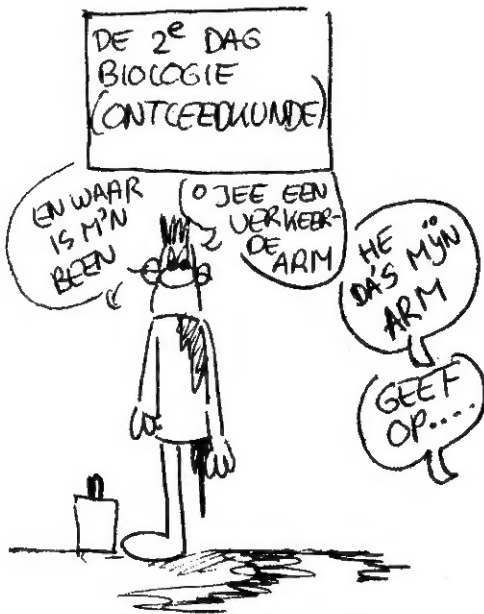 DE 2e DAG
BIOLOGIE
(ONTLEEDKUNDE)
EN WAAR
IS M'N
BEEN
O JEE EEN
VERKEER-
DE
ARM
HE
DA'S MIJN
ARM
GEEF
OP....